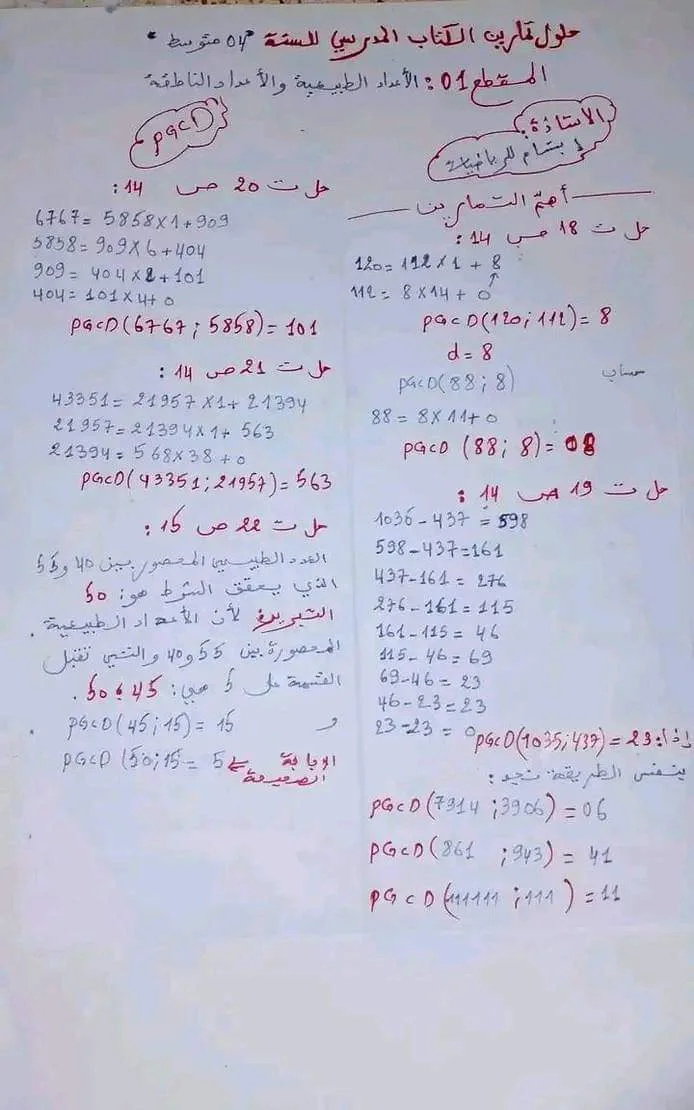 حلول تمارين الكتاب المدرسي للسنة 04 متوسط
المقطع 01: الأعداد الطبيعية والأعداد الناطقة
الأستاذة:
ابتسام للرياضيات
PGCD
أهمّ التمارين
حل ت 18 ص 14:
120=112×1+8
112=8×14+0
PGCD(120;112)=8
d=8
حساب PGCD(88;8)
88=8×11+0
PGCD(88;8)=08
حل ت 19 ص 14:
1035-437=598
598-437=161
437-161=276
276-161=115
161-115=46
115-46=69
69-46=23
46-23=23
23-23=0
إذا: PGCD(1035;437)=23
بنفس الطريقة نجد:
PGCD(7914;3906)=06
PGCD(861;943)=41
PGCD(111111;111)=11
حل ت 20 ص 14:
6767=5858×1+909
5858=909×6+404
909=404×2+101
404=101×4+0
PGCD(6767;5858)=101
حل ت 21 ص 14:
43351=21957×1+21394
21957=21394×1+563
21394=568×38+0
PGCD(43351;21957)=563
حل ت 22 ص 15:
العدد الطبيعي المحصور بين 40 و 55
الذي يحقق الشرط هو: 50
التبرير: لأن الأعداد الطبيعية
المحصورة بين 55 و 40 والتي تقبل
القسمة على 5 هي: 45 ؛ 50.
و PGCD(45;15)=15
PGCD(50;15=5 ← الإجابة الصحيحة